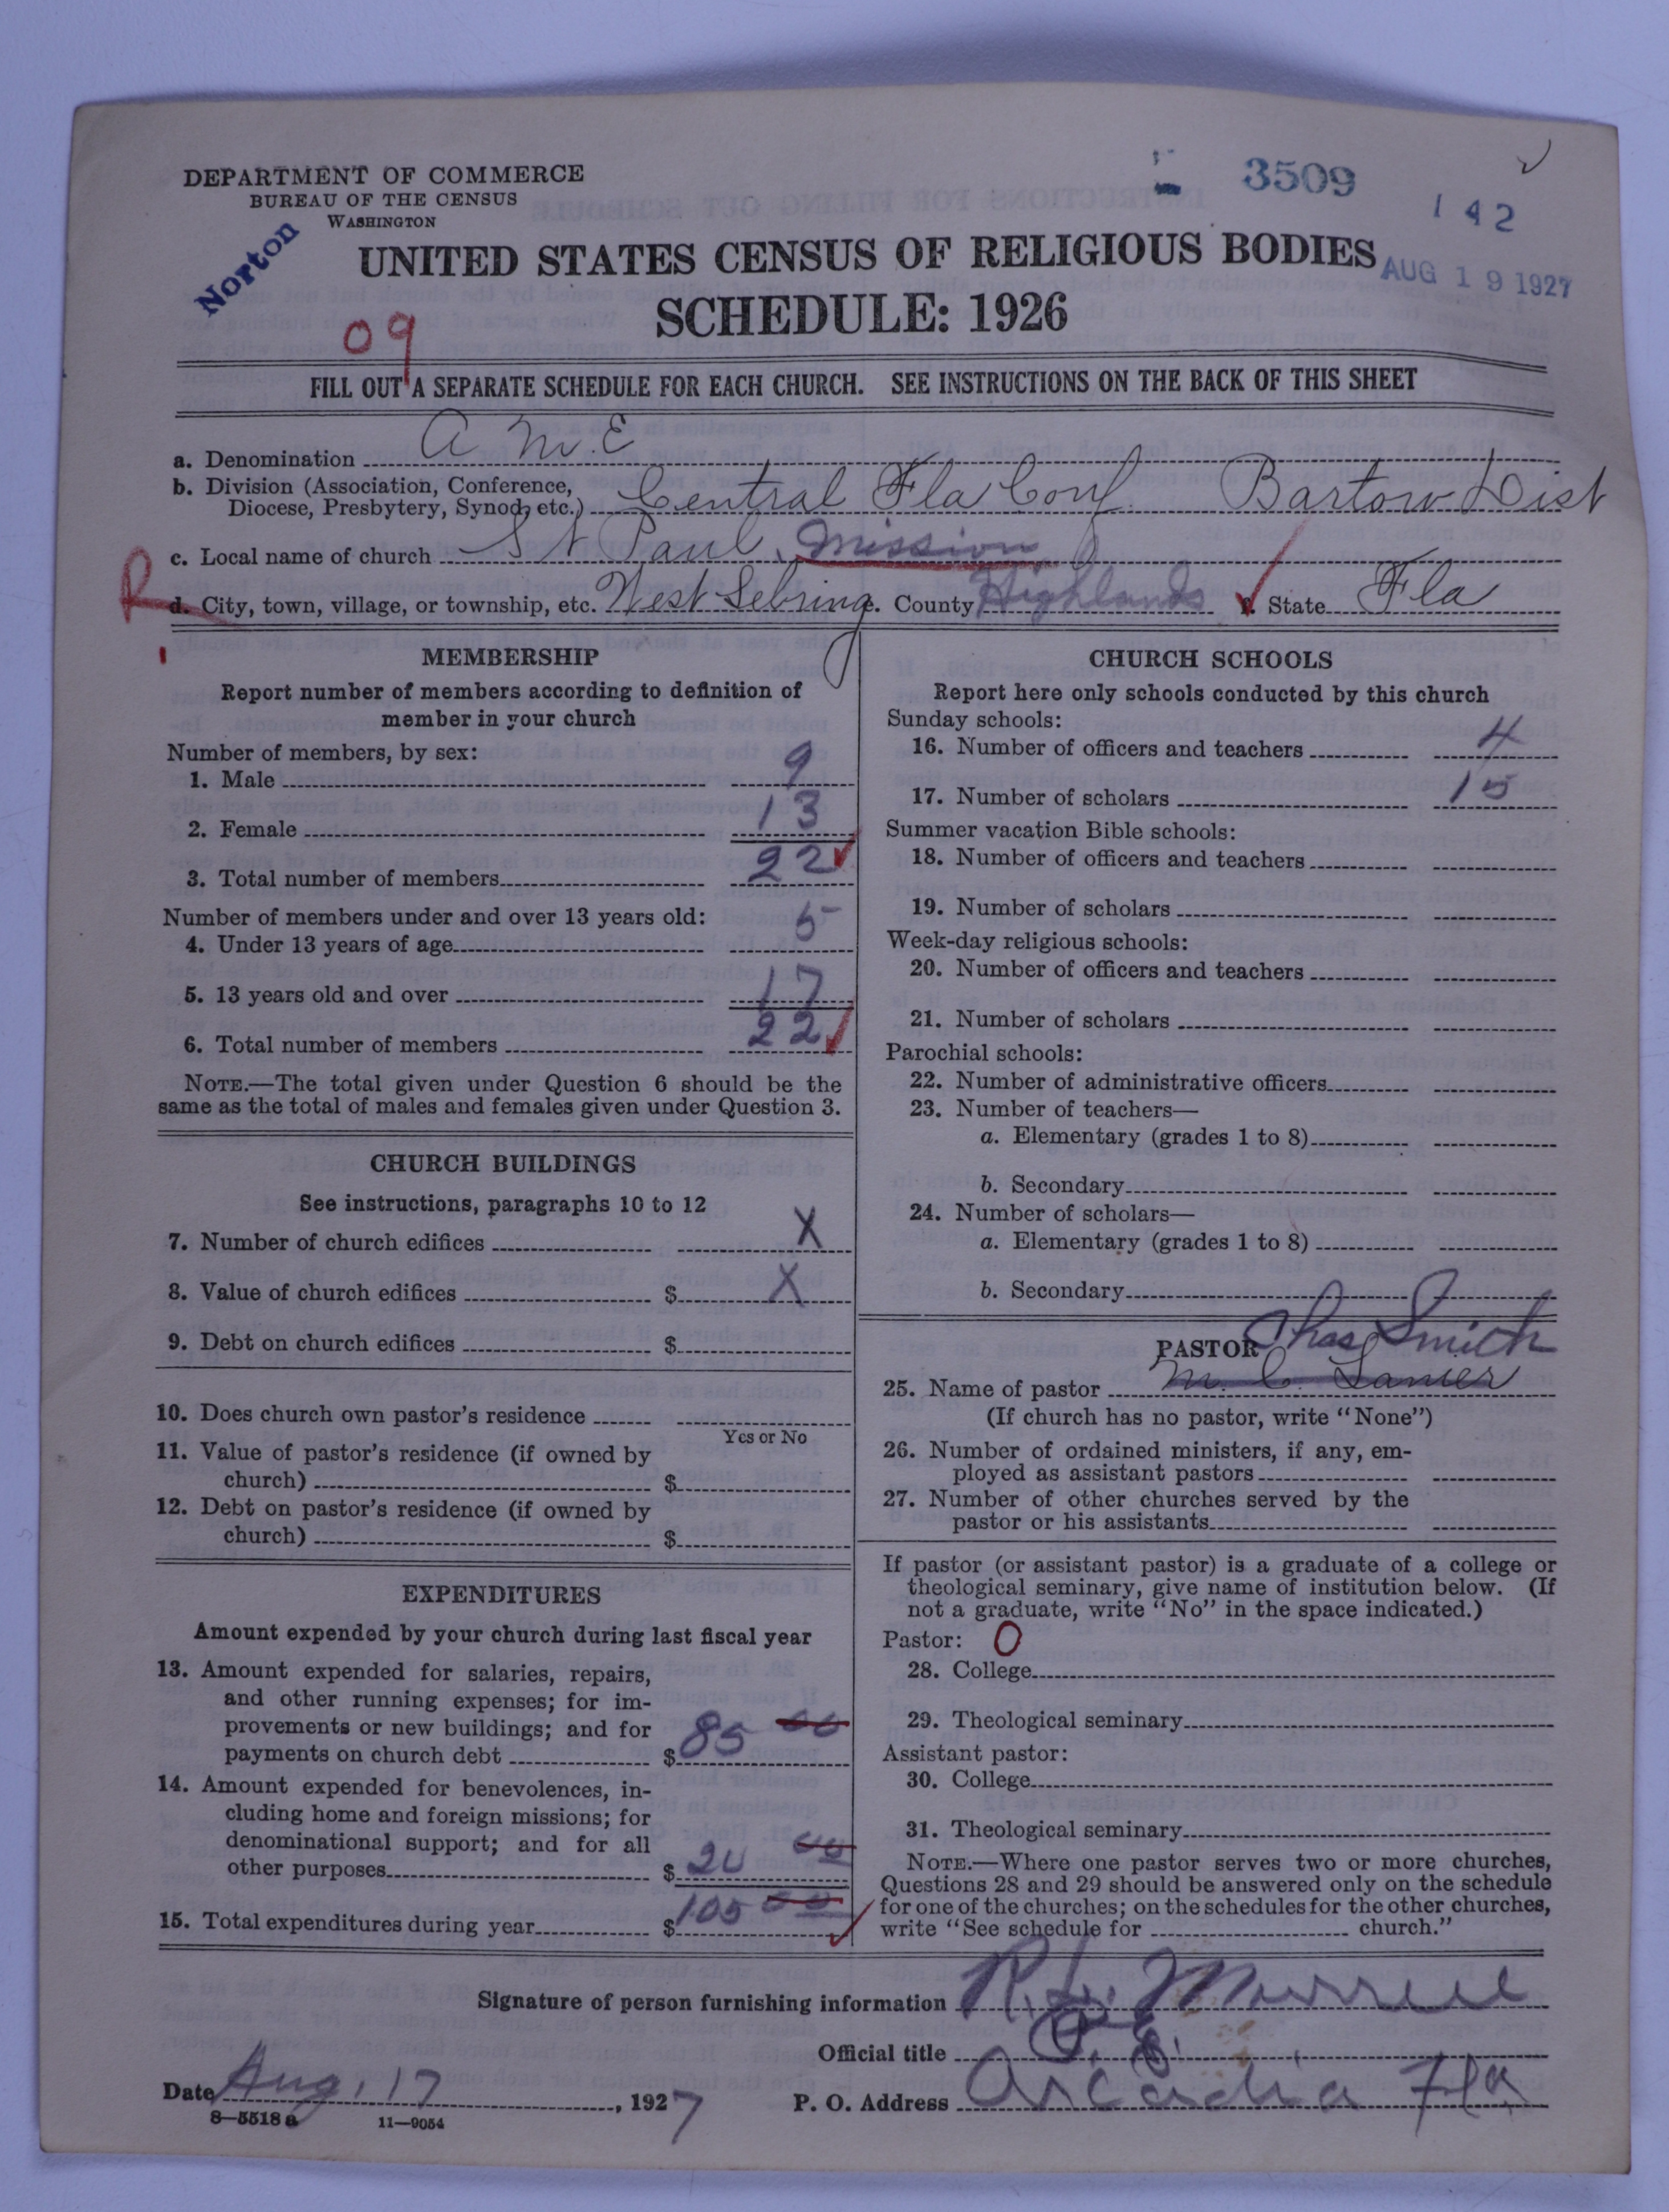 DEPARTMENT OF COMMERCE
BUREAU OF THE CENSUS
WASHINGTON
3509
142
Norton
UNITED STATES CENSUS OF RELIGIOUS BODIES
AUG 19 1927
SCHEDULE: 1926
09
FILL OUT A SEPARATE SCHEDULE FOR EACH CHURCH. SEE INSTRUCTIONS ON THE BACK OF THIS SHEET
a. Denomination A M. E
b. Division (Association, Conference, Diocese, Presbytery, Synod, etc.) Central Fla Conf. Bartow Dist
c. Local name of church St Paul. Mission
R
d. City, town, village, or township, etc. West Sebring e. County Highlands f. State Fla
MEMBERSHIP
Report number of members according to definition of
member in your church
Number of members, by sex:
1. Male 9
2. Female 13
3. Total number of members 22
Number of members under and over 13 years old:
4. Under 13 years of age 5
5. 13 years old and over 17
6. Total number of members 22
NOTE.—The total given under Question 6 should be the
same as the total of males and females given under Question 3.
CHURCH BUILDINGS
See instructions, paragraphs 10 to 12
7. Number of church edifices X
8. Value of church edifices $ X
9. Debt on church edifices $
10. Does church own pastor's residence
Yes or No
11. Value of pastor's residence (if owned by
church) $
12. Debt on pastor's residence (if owned by
church) $
EXPENDITURES
Amount expended by your church during last fiscal year
13. Amount expended for salaries, repairs,
and other running expenses; for im-
provements or new buildings; and for
payments on church debt $ 85 00
14. Amount expended for benevolences, in-
cluding home and foreign missions; for
denominational support; and for all
other purposes $ 20 00
15. Total expenditures during year $ 105 00
CHURCH SCHOOLS
Report here only schools conducted by this church
Sunday schools:
16. Number of officers and teachers 4
17. Number of scholars 15
Summer vacation Bible schools:
18. Number of officers and teachers
19. Number of scholars
Week-day religious schools:
20. Number of officers and teachers
21. Number of scholars
Parochial schools:
22. Number of administrative officers
23. Number of teachers—
a. Elementary (grades 1 to 8)
b. Secondary
24. Number of scholars—
a. Elementary (grades 1 to 8)
b. Secondary
PASTOR Chas Smith
25. Name of pastor M. C. Lanier
(If church has no pastor, write "None")
26. Number of ordained ministers, if any, em-
ployed as assistant pastors
27. Number of other churches served by the
pastor or his assistants
If pastor (or assistant pastor) is a graduate of a college or
theological seminary, give name of institution below. (If
not a graduate, write "No" in the space indicated.)
Pastor: 0
28. College
29. Theological seminary
Assistant pastor:
30. College
31. Theological seminary
NOTE.—Where one pastor serves two or more churches,
Questions 28 and 29 should be answered only on the schedule
for one of the churches; on the schedules for the other churches,
write "See schedule for church."
Signature of person furnishing information R. L. Murrell
Official title P. E.
Date Aug. 17, 1927 P. O. Address Arcadia Fla
8—5518 a 11—9054